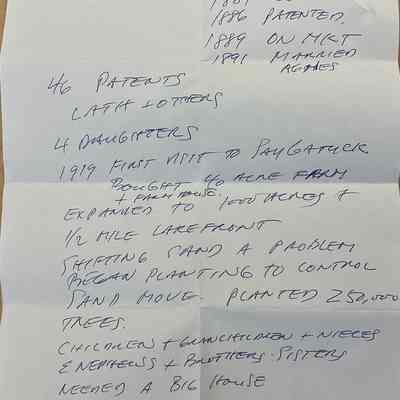 1886 PATENTED.
1889 ON MKT
1891 MARRIED
AGNES
46 PATENTS
LATH + OTHERS
4 DAUGHTERS
1919 FIRST VISIT TO SAUGATUCK
BOUGHT 40 ACRE FARM
+ FARM HOUSE.
EXPANDED TO 1000 ACRES +
1/2 MILE LAKEFRONT
SHIFTING SAND A PROBLEM
BEGAN PLANTING TO CONTROL
SAND MOVE. PLANTED 250,000
TREES.
CHILDREN + GRANCHILDREN + NIECES
& NEPHEWS + BROTHERS-SISTERS
NEEDED A BIG HOUSE